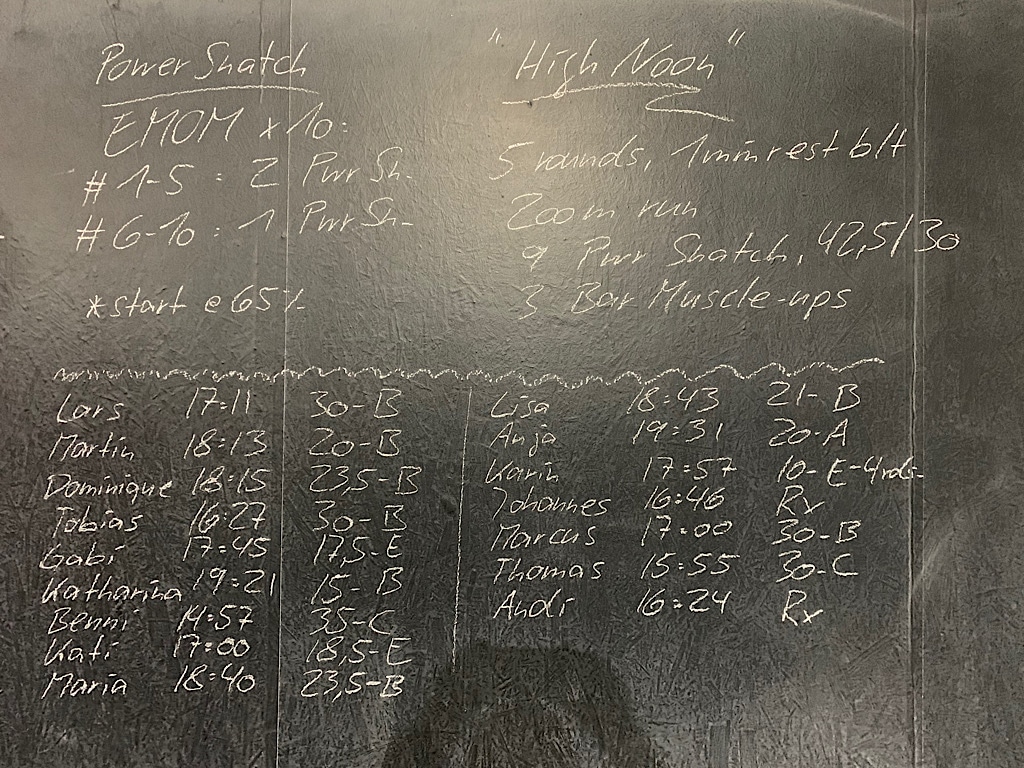 Power Snatch
EMOM x 10:
# 1-5 : 2 Pwr Sn.
# 6-10 : 1 Pwr Sn.
*start @ 65%
"High Noon"
5 rounds, 1 min rest b/t
200m run
9 Pwr Snatch, 42,5/30
3 Bar Muscle-ups
Lars 17:11 30-B
Martin 18:13 20-B
Dominique 18:15 23,5-B
Tobias 16:27 30-B
Gabi 17:45 17,5-E
Katharina 19:21 15-B
Benni 14:57 35-C
Kati 17:00 18,5-E
Maria 18:40 23,5-B
Lisa 18:43 21-B
Anja 19:31 20-A
Karin 17:57 10-E-4rds.
Johannes 16:46 Rx
Marcus 17:00 30-B
Thomas 15:55 30-C
Andi 16:24 Rx